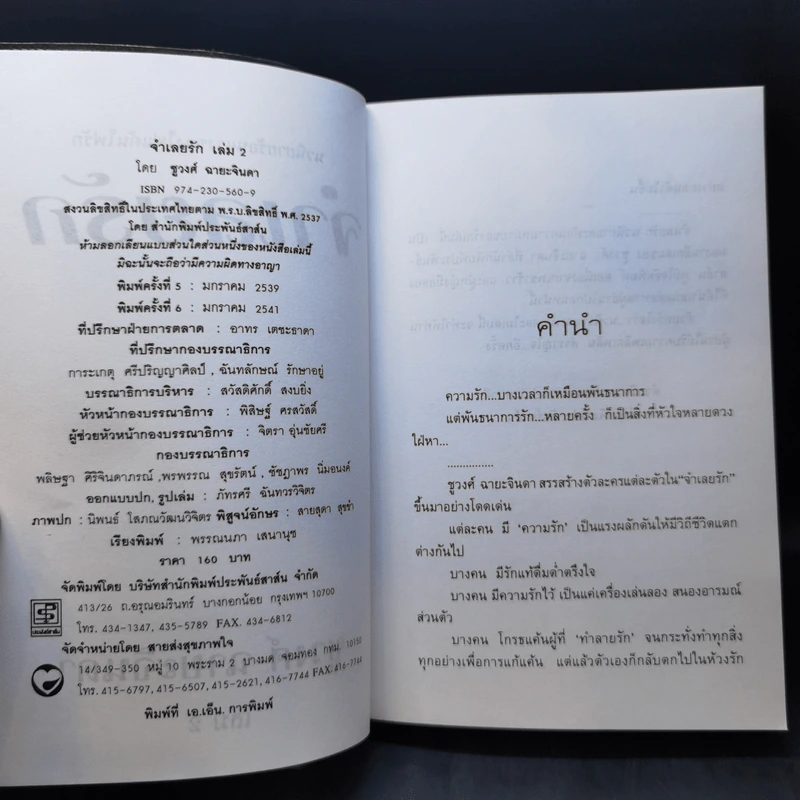 จำเลยรัก เล่ม 2
โดย ชูวงศ์ ฉายะจินดา
ISBN 974-230-560-9
สงวนลิขสิทธิ์ในประเทศไทยตาม พ.ร.บ.ลิขสิทธิ์ พ.ศ. 2537
โดย สำนักพิมพ์ประพันธ์สาส์น
ห้ามลอกเลียนแบบส่วนใดส่วนหนึ่งของหนังสือเล่มนี้
มิฉะนั้นจะถือว่ามีความผิดทางอาญา
พิมพ์ครั้งที่ 5 : มกราคม 2539
พิมพ์ครั้งที่ 6 : มกราคม 2541
ที่ปรึกษาฝ่ายการตลาด : อาทร เตชะธาดา
ที่ปรึกษากองบรรณาธิการ
การะเกตุ ศรีปริญญาศิลป์ , ฉันทลักษณ์ รักษาอยู่
บรรณาธิการบริหาร : สวัสดิศักดิ์ สงบยิ่ง
หัวหน้ากองบรรณาธิการ : พิสิษฐ์ ศรสวัสดิ์
ผู้ช่วยหัวหน้ากองบรรณาธิการ : จิตรา อุ่นชัยศรี
กองบรรณาธิการ
พลิษฐา ศิริจินดาภรณ์ ,พรพรรณ สุขรัตน์ , ชัชฎาพร นิ่มอนงค์
ออกแบบปก, รูปเล่ม : ภัทรศรี ฉันทวรวิจิตร
ภาพปก : นิพนธ์ โสภณวัฒนวิจิตร พิสูจน์อักษร : สายสุดา สุขขำ
เรียงพิมพ์ : พรรณนภา เสนานุช
ราคา 160 บาท
จัดพิมพ์โดย บริษัทสำนักพิมพ์ประพันธ์สาส์น จำกัด
413/26 ถ.อรุณอมรินทร์ บางกอกน้อย กรุงเทพฯ 10700
โทร. 434-1347, 435-5789 FAX. 434-6812
จัดจำหน่ายโดย สายส่งสุขภาพใจ
14/349-350 หมู่ 10 พระราม 2 บางมด จอมทอง กทม. 10150
โทร. 415-6797, 415-6507, 415-2621, 416-7744 FAX. 416-7744
พิมพ์ที่ เอ.เอ็น. การพิมพ์
คำนำ
ความรัก...บางเวลาก็เหมือนพันธนาการ
แต่พันธนาการรัก...หลายครั้ง ก็เป็นสิ่งที่หัวใจหลายดวง
ใฝ่หา...
...............
ชูวงศ์ ฉายะจินดา สรรสร้างตัวละครแต่ละตัวใน“จำเลยรัก”
ขึ้นมาอย่างโดดเด่น
แต่ละคน มี ‘ความรัก’ เป็นแรงผลักดันให้มีวิถีชีวิตแตก
ต่างกันไป
บางคน มีรักแท้ดื่มด่ำตรึงใจ
บางคน มีความรักไว้ เป็นแค่เครื่องเล่นลอง สนองอารมณ์
ส่วนตัว
บางคน โกรธแค้นผู้ที่ ‘ทำลายรัก’ จนกระทั่งทำทุกสิ่ง
ทุกอย่างเพื่อการแก้แค้น แต่แล้วตัวเองก็กลับตกไปในห้วงรัก